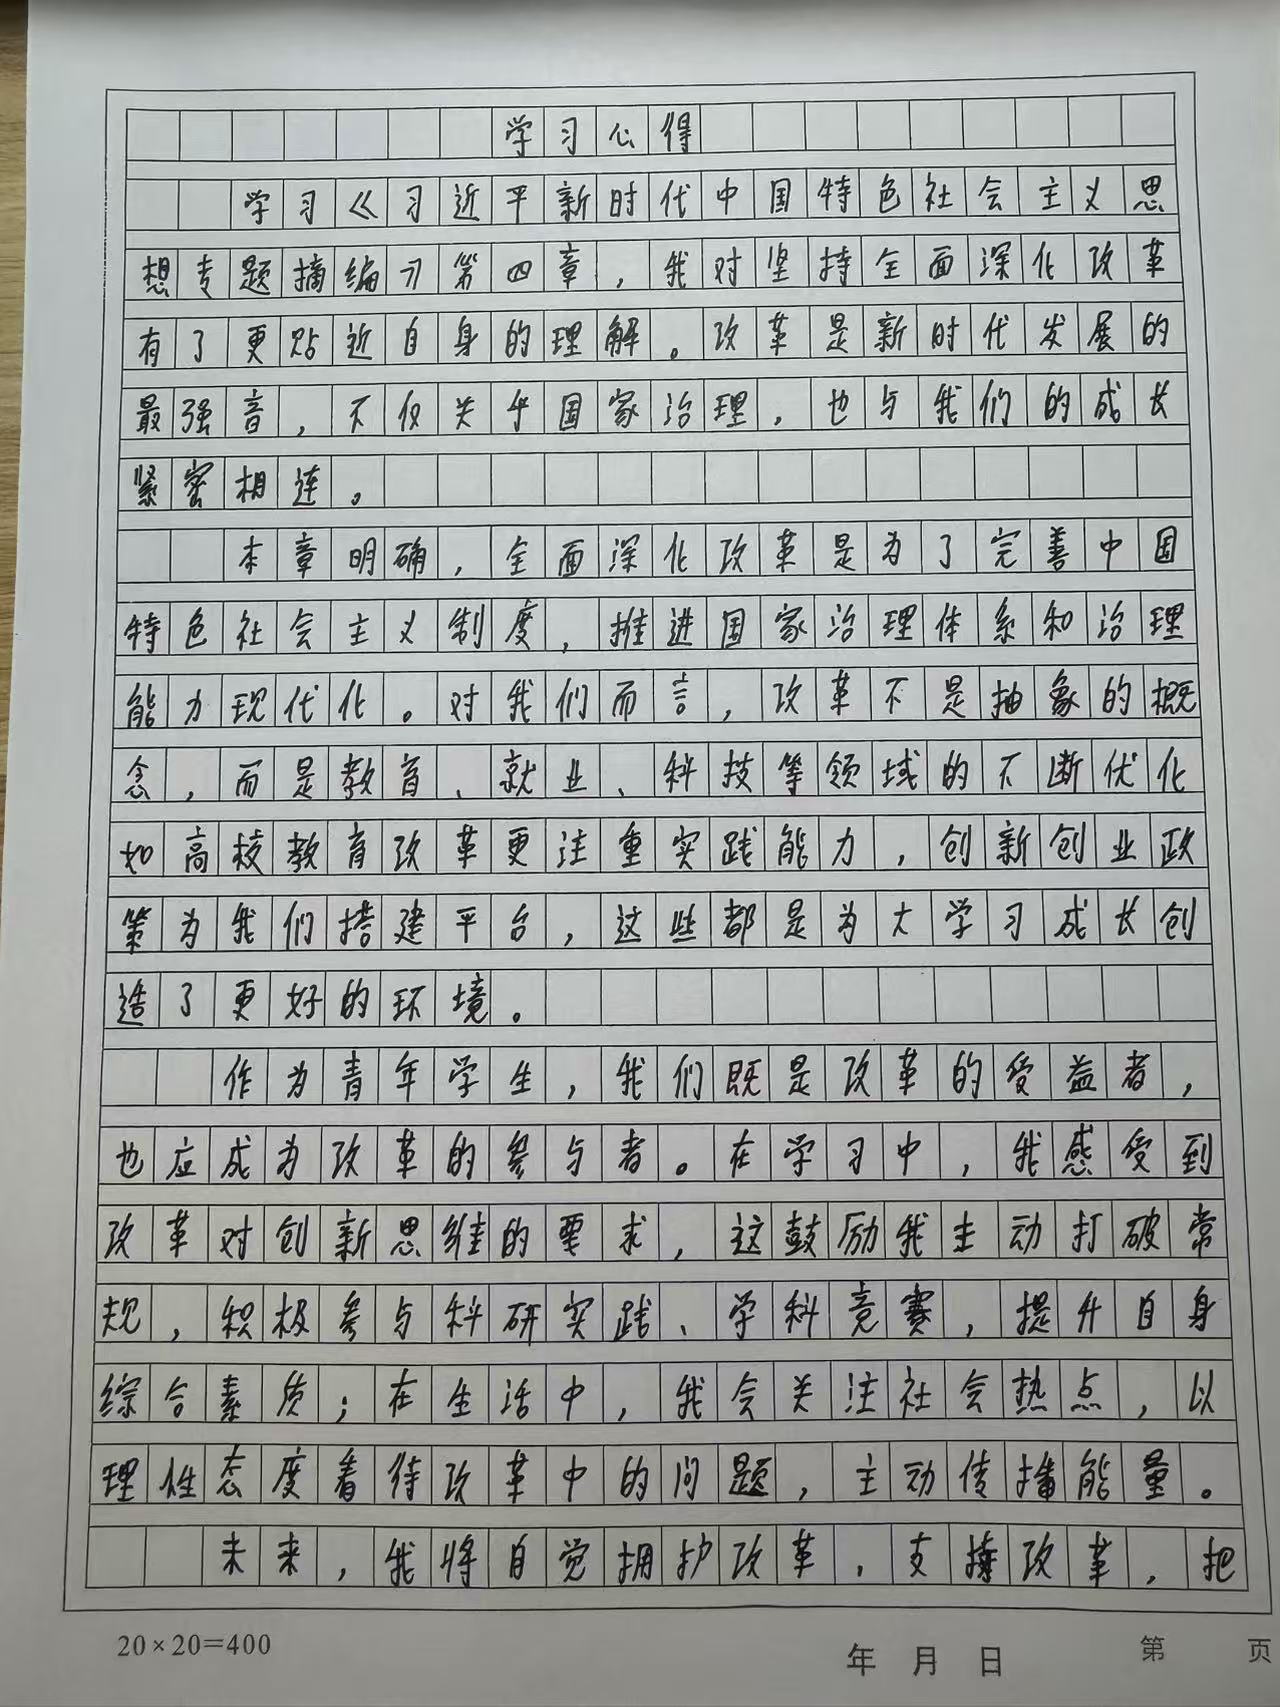 学习心得
学习《习近平新时代中国特色社会主义思
想专题摘编》第四章，我对坚持全面深化改革
有了更贴近自身的理解。改革是新时代发展的
最强音，不仅关乎国家治理，也与我们的成长
紧密相连。
本章明确，全面深化改革是为了完善中国
特色社会主义制度，推进国家治理体系和治理
能力现代化。对我们而言，改革不是抽象的概
念，而是教育、就业、科技等领域的不断优化
如高校教育改革更注重实践能力，创新创业政
策为我们搭建平台，这些都是为大学习成长创
造了更好的环境。
作为青年学生，我们既是改革的受益者，
也应成为改革的参与者。在学习中，我感受到
改革对创新思维的要求，这鼓励我主动打破常
规，积极参与科研实践、学科竞赛，提升自身
综合素质；在生活中，我会关注社会热点，以
理性态度看待改革中的问题，主动传播能量。
未来，我将自觉拥护改革，支持改革，把
20×20=400
年 月 日
第 页